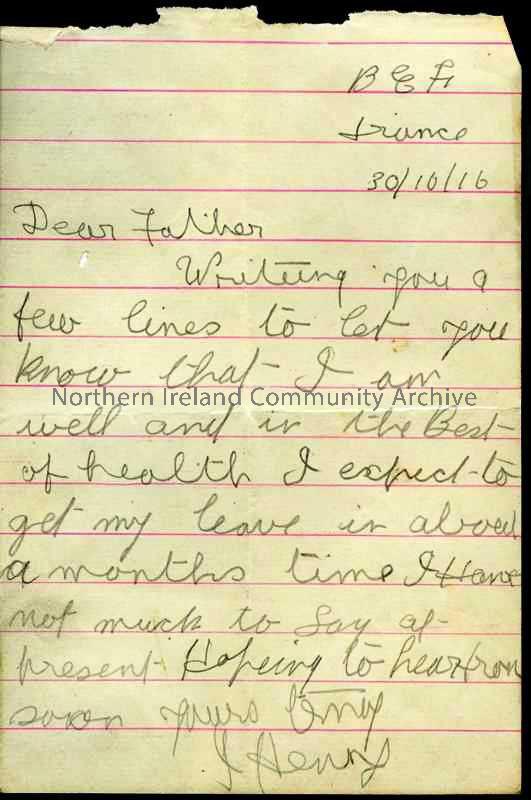 B E F
France
30/10/16
Dear Father
Writeing you a
few lines to let you
know that I am
Northern Ireland Community Archive
well and in the Best
of health I expect to
get my leave in about
a months time I Have
not much to say at
present Hopeing to hear from
soon yours
J Henry